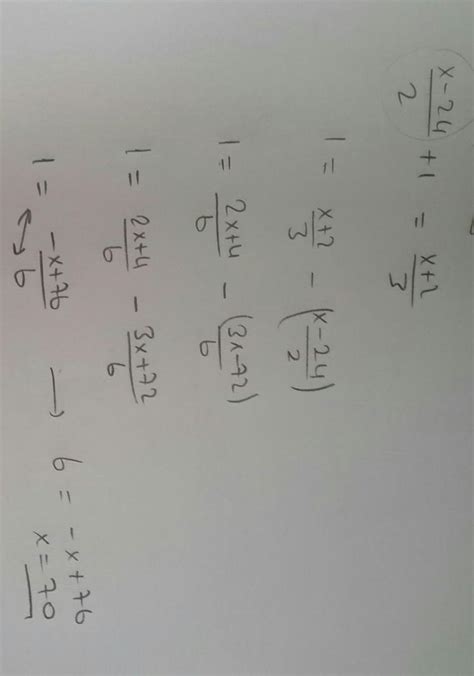 x-24/2 + 1 = x+2/3
1 = x+2/3 - (x-24/2)
1 = 2x+4/6 - (3x-72)/6
1 = 2x+4/6 - 3x+72/6
1 = -x+76/6 → 6 = -x+76
x = 70